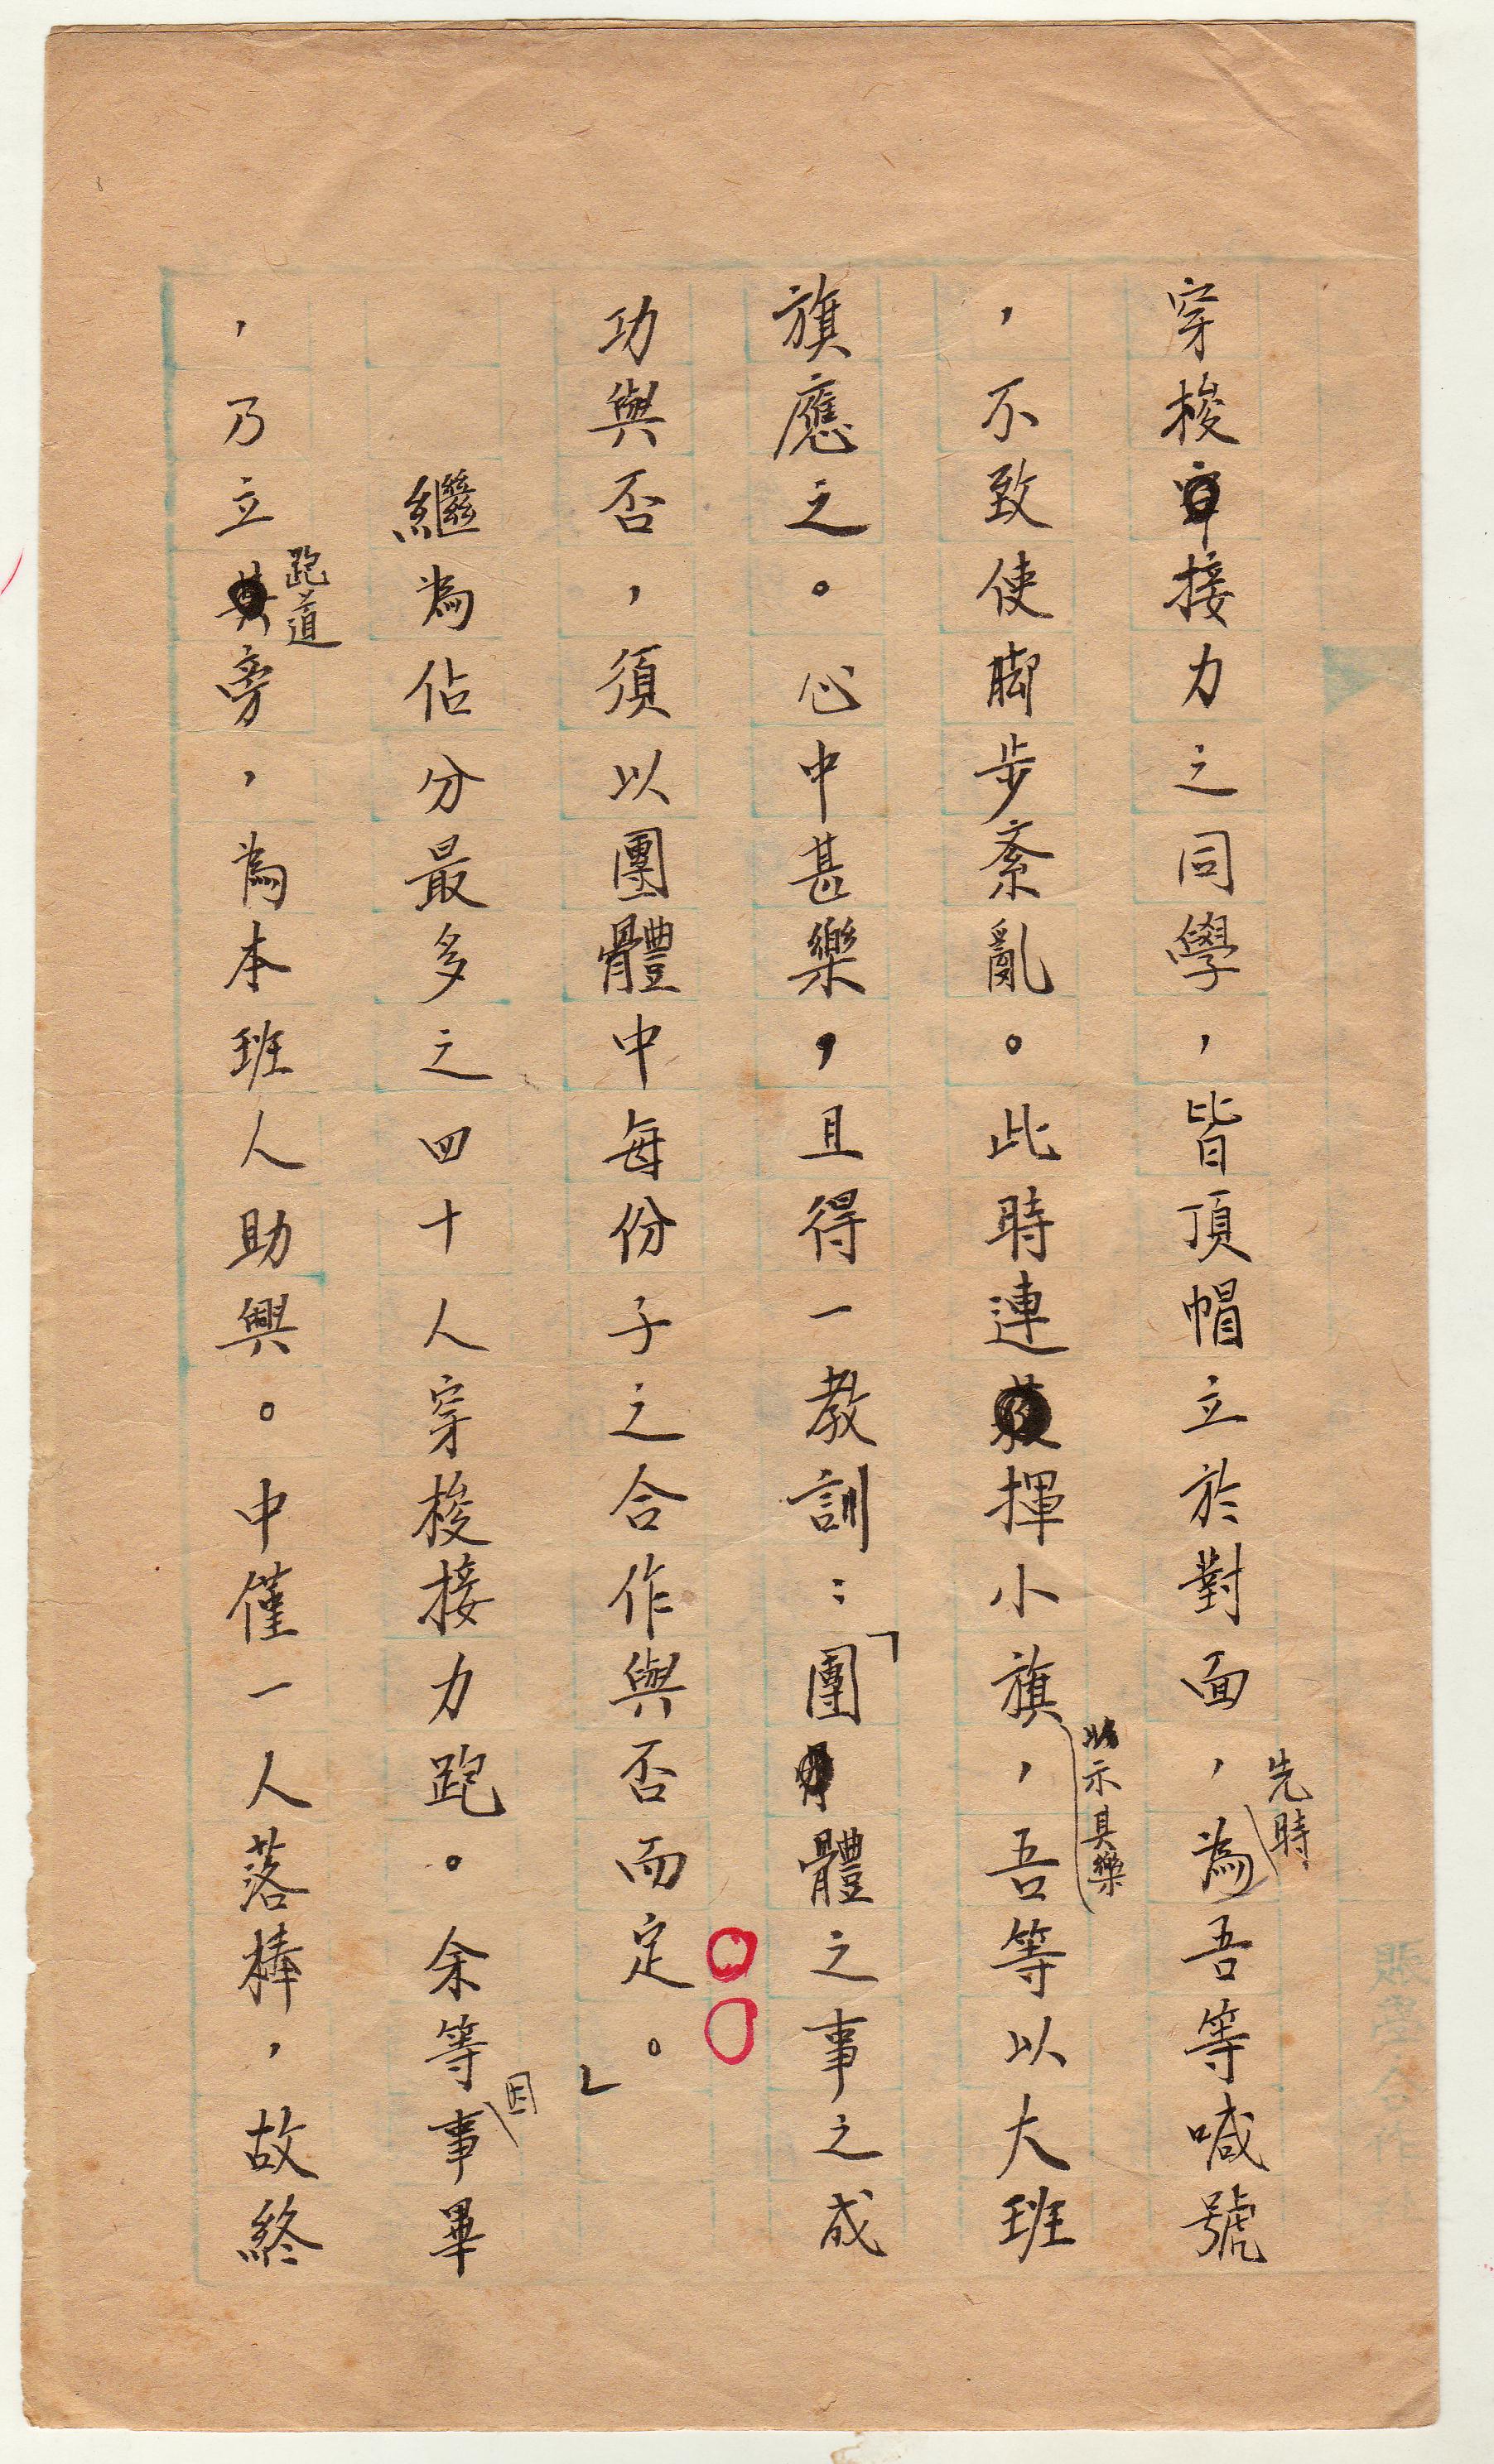 穿梭接力之同學，皆頂帽立於對面，先時為吾等喊號
，不致使脚步紊亂。此時連揮小旗，以示其樂吾等以大班
旗應之。心中甚樂，且得一教訓：「團體之事之成
功與否，須以團體中每份子之合作與否而定。」
繼為佔分最多之四十人穿梭接力跑。余等因事畢
，乃立跑道旁，為本班人助興。中僅一人落棒，故終